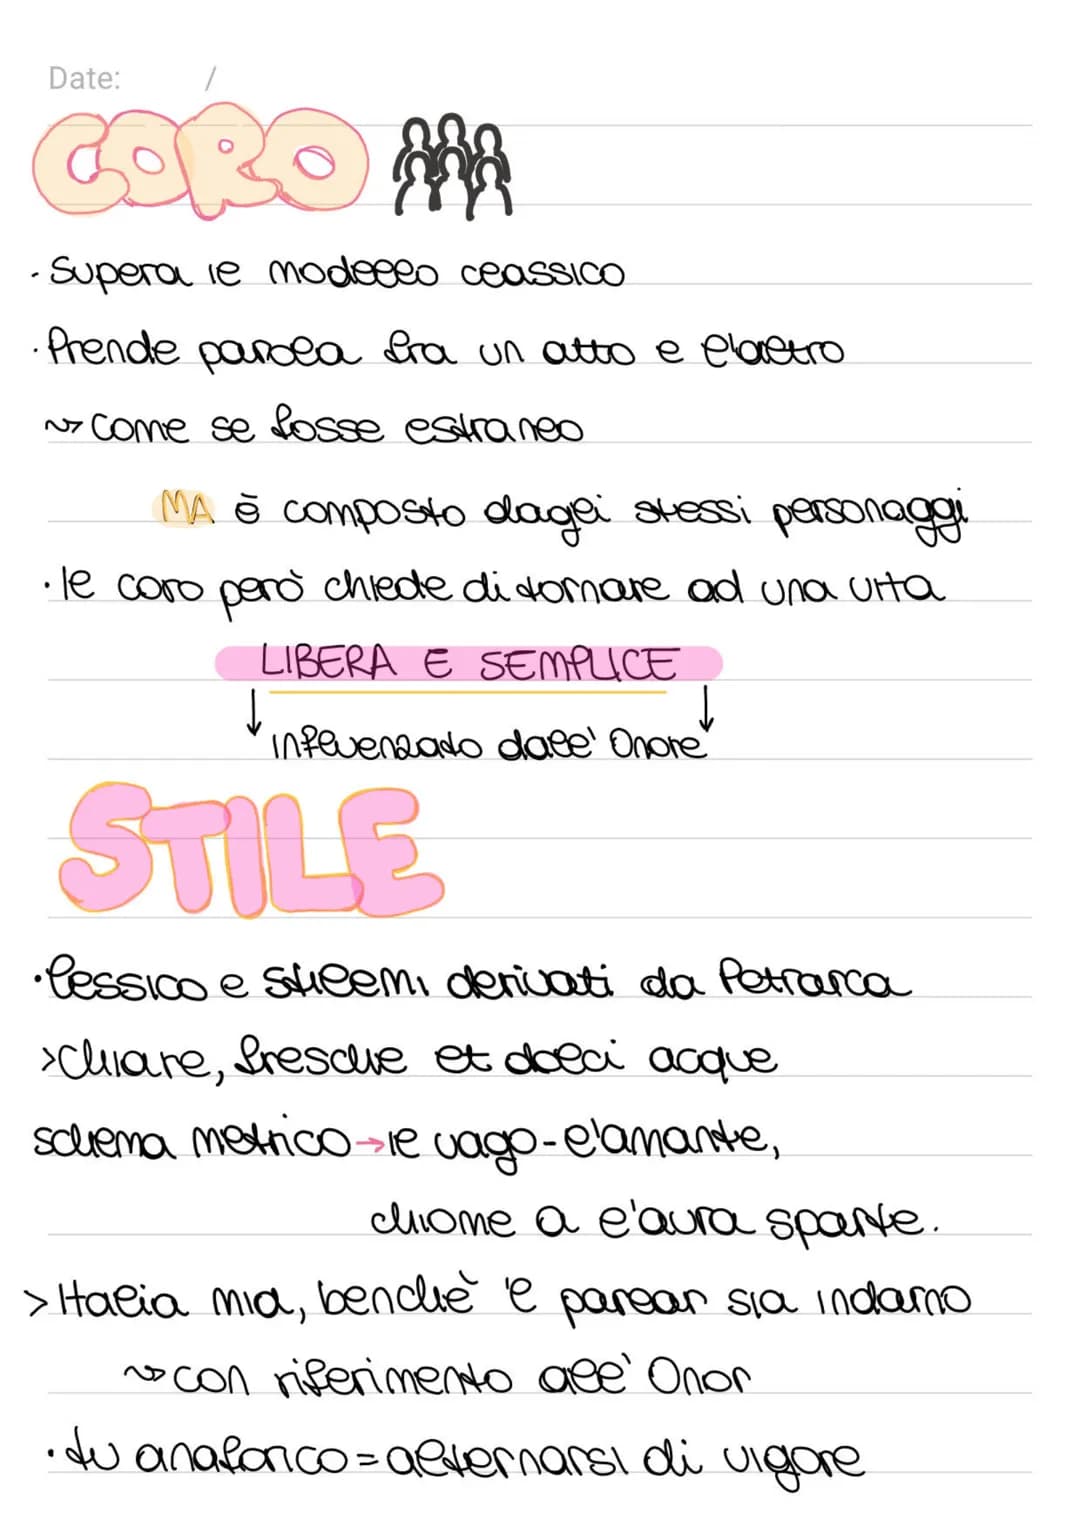 Date: /
CORO
· Supera il modello classico
· Prende parola fra un atto e l'altro
~> Come se fosse estraneo
MA è composto dagli stessi personaggi
· Il coro però chiede di tornare ad una vita
LIBERA E SEMPLICE
↓ ↓
influenzato dall' Onore
STILE
· lessico e stilemi derivati da Petrarca
> Chiare, fresche et dolci acque
schema metrico → il vago - l'amante,
chiome a l'aura sparte.
> Italia mia, benchè 'l parlar sia indarno
~> con riferimento all' Onor
· tu anaforico = alternarsi di vigore